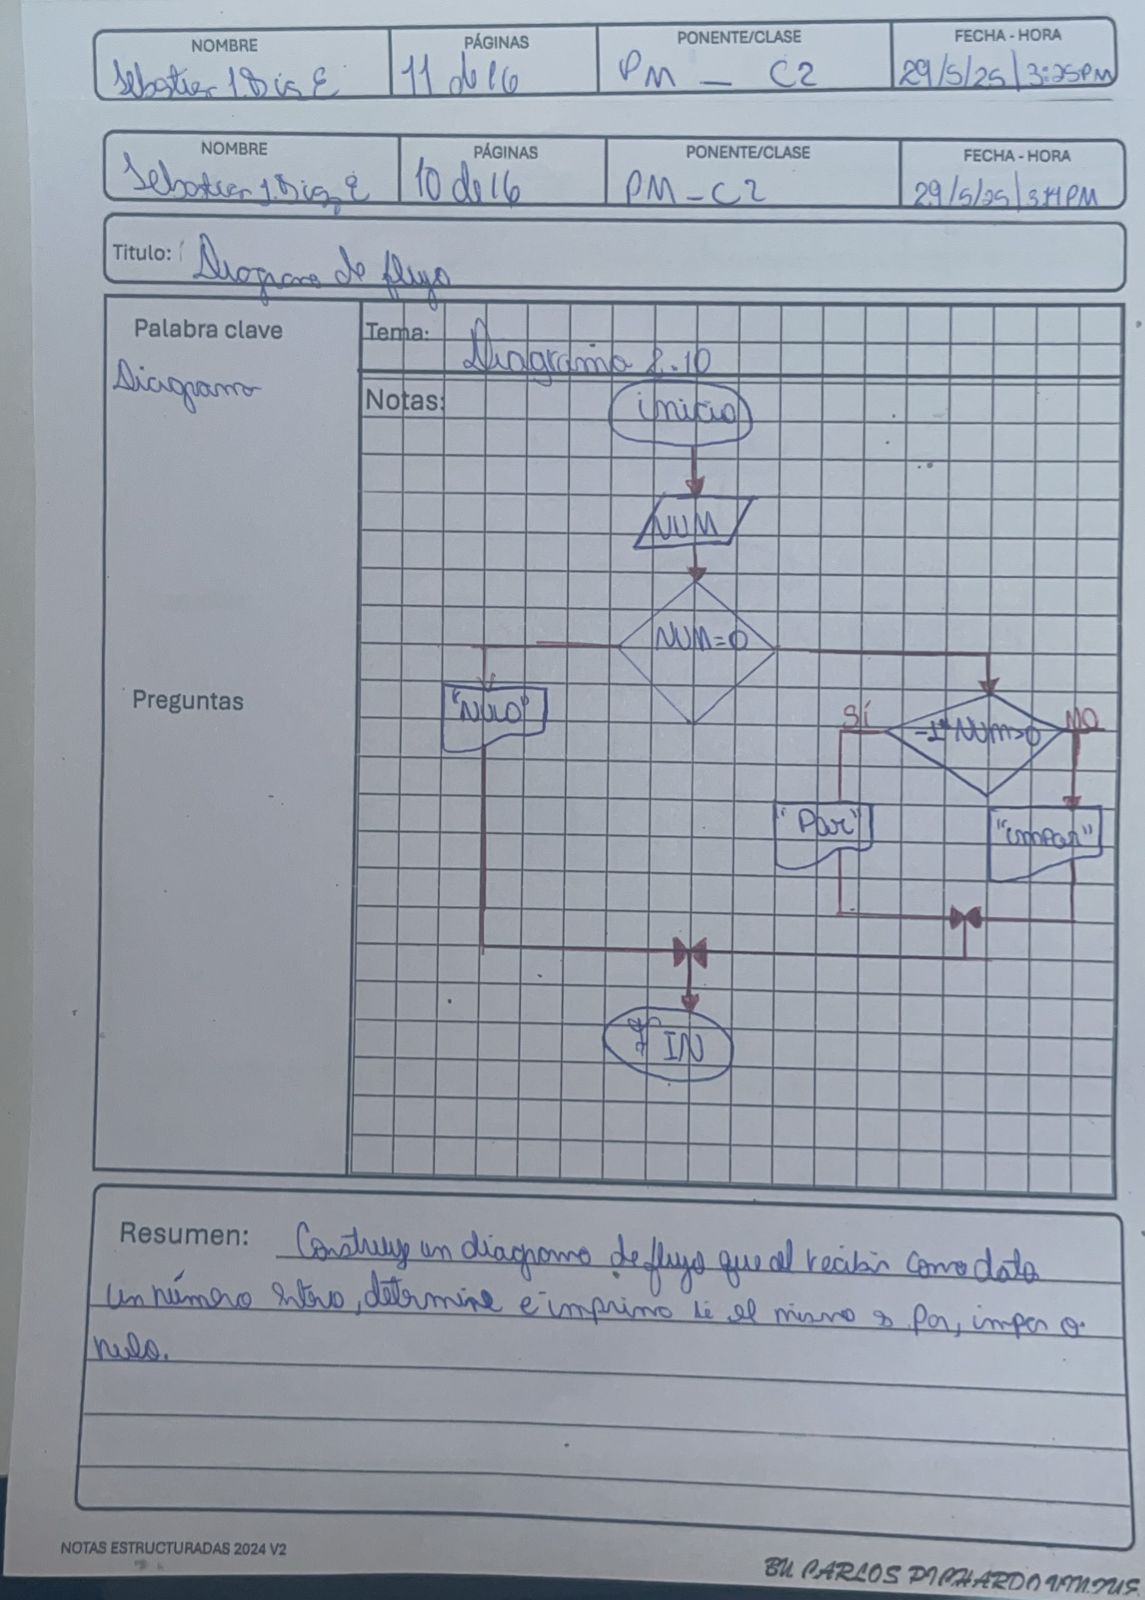 NOMBRE PÁGINAS PONENTE/CLASE FECHA - HORA
11 de 16 PM - C2 29/5/25 | 3:25PM
NOMBRE PÁGINAS PONENTE/CLASE FECHA - HORA
10 de 16 PM - C2 29/5/25 | 3:
Titulo: Diagrama de flujo
Palabra clave
Diagrama
Tema: Diagrama 2.10
Notas:
inicio
NUM
NUM=0
"Nulo"
Preguntas
SÍ -1^NUM>0 NO
"Par" "impar"
FIN
Resumen: Construya un diagrama de flujo que al recibir como dato
un número entero, determine e imprima si el mismo es par, impar o
nulo.
NOTAS ESTRUCTURADAS 2024 V2
BU CARLOS PICHARDO